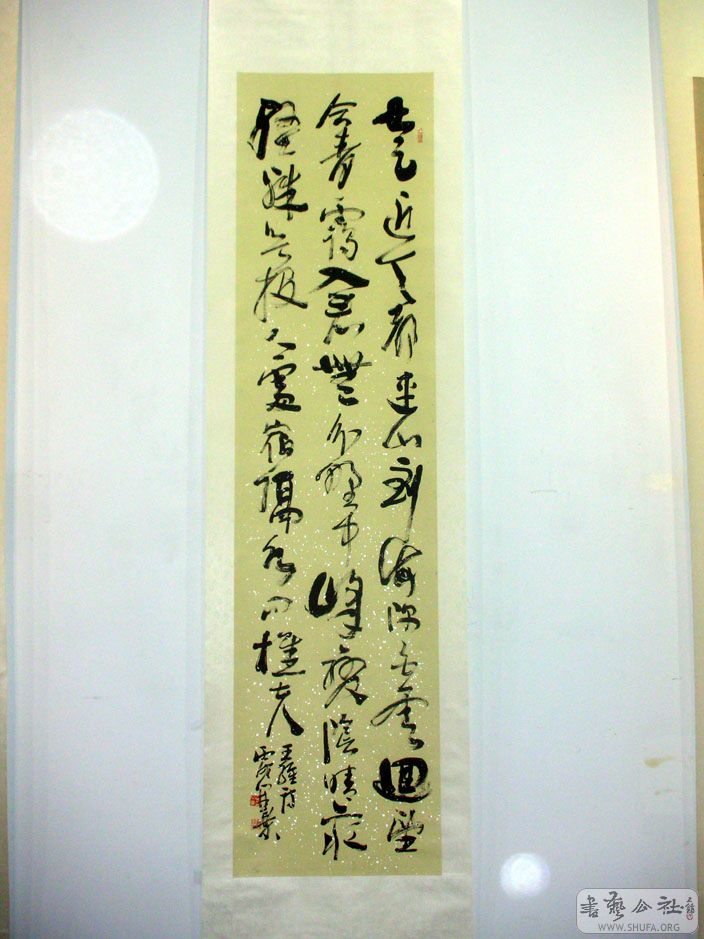 太乙近天都連山到海隅白雲迴望
合青靄入看無分野中峰變陰晴眾
壑殊欲投人處宿隔水問樵夫
王維詩
書藝公社
WWW.SHUFA.ORG